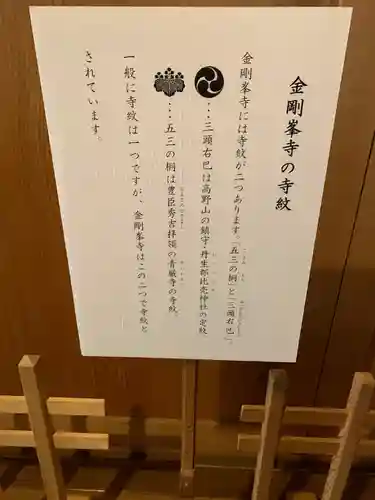 金剛峯寺の寺紋
金剛峯寺には寺紋が二つあります。「五三の桐」と「三頭右巴」。
…三頭右巴は高野山の鎮守・丹生都比売神社の定紋
…五三の桐は豊臣秀吉拝領の青巌寺の寺紋。
一般に寺紋は一つですが、金剛峯寺はこの二つで寺紋と
されています。